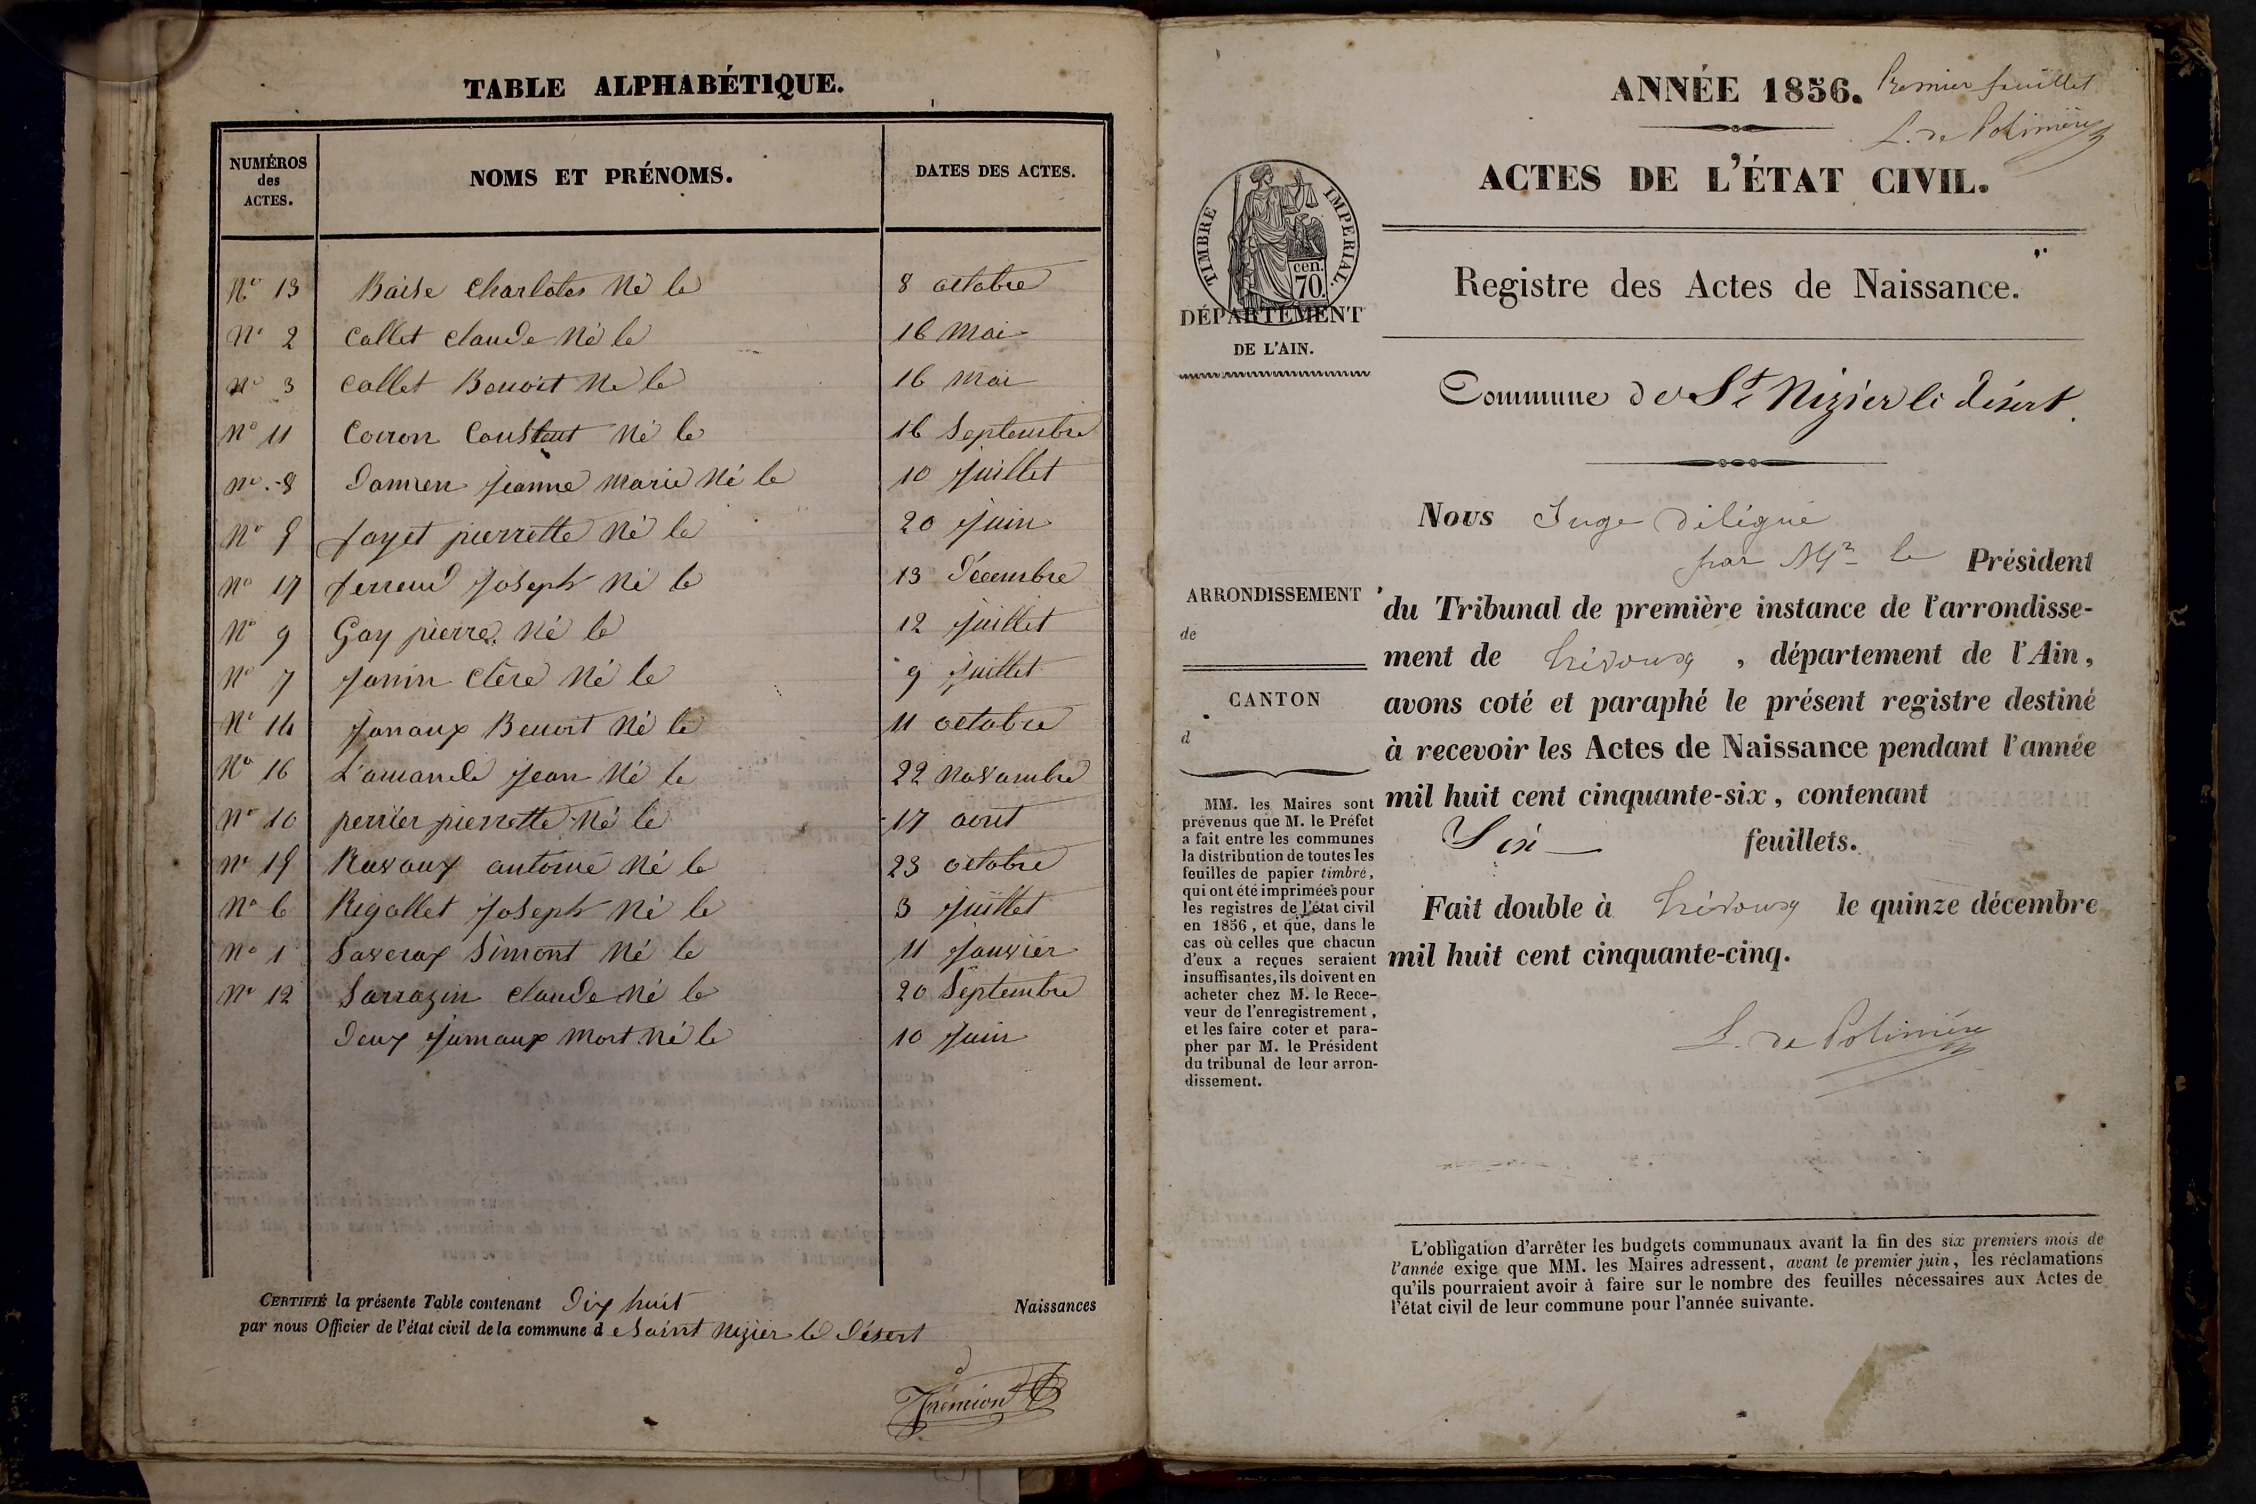 TABLE ALPHABÉTIQUE.
NUMÉROS des ACTES.
NOMS ET PRÉNOMS.
DATES DES ACTES.
No 13 Baise Charlotes Né le 8 octobre
No 2 Collet Claude Né le 16 Mai
No 3 Collet Benoit Né le 16 Mai
No 11 Coiron Constant Né le 16 Septembre
No 8 Damien Jeanne Marie Né le 10 Juillet
No 5 fayet pierrette Né le 20 Juin
No 17 ferrend Joseph Né le 13 Décembre
No 9 Gay pierre Né le 12 Juillet
No 7 Janin Clère Né le 9 Juillet
No 14 Janaux Benoit Né le 11 octobre
No 16 L'amande Jean Né le 22 Novambre
No 10 perrier pierrette Né le 17 aout
No 15 Ravaux antoine Né le 23 octobre
No 6 Rigollet Joseph Né le 3 Juillet
No 1 Saveray Simont Né le 11 Janvier
No 12 Sarrazin Claude Né le 20 Septembre
Deux Jumaux Mort Né le 10 Juin
CERTIFIÉ la présente Table contenant Dix huit Naissances
par nous Officier de l'état civil de la commune d e Saint Nizier le Désert
ANNÉE 1856.
Premier feuillet
L. de Polinière
ACTES DE L'ÉTAT CIVIL.
TIMBRE IMPERIAL.
cen.
70
DÉPARTEMENT
DE L'AIN.
Registre des Actes de Naissance.
Commune de St Nizier le désert.
Nous Juge délégué
par Mr le Président
ARRONDISSEMENT
de
CANTON
d
du Tribunal de première instance de l'arrondisse-
ment de trévoux, département de l'Ain,
avons coté et paraphé le présent registre destiné
à recevoir les Actes de Naissance pendant l'année
mil huit cent cinquante-six, contenant
Six feuillets.
Fait double à trévoux le quinze décembre
mil huit cent cinquante-cinq.
L. de Polinière
MM. les Maires sont
prévenus que M. le Préfet
a fait entre les communes
la distribution de toutes les
feuilles de papier timbré,
qui ont été imprimées pour
les registres de l'état civil
en 1856, et que, dans le
cas où celles que chacun
d'eux a reçues seraient
insuffisantes, ils doivent en
acheter chez M. le Rece-
veur de l'enregistrement,
et les faire coter et para-
pher par M. le Président
du tribunal de leur arron-
dissement.
L'obligation d'arrêter les budgets communaux avant la fin des six premiers mois de
l'année exige que MM. les Maires adressent, avant le premier juin, les réclamations
qu'ils pourraient avoir à faire sur le nombre des feuilles nécessaires aux Actes de
l'état civil de leur commune pour l'année suivante.